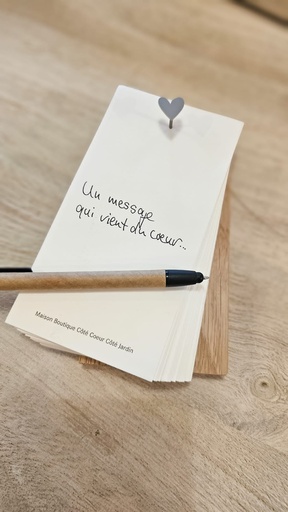 Un message
qui vient du cœur...
Maison Boutique Côté Coeur Côté Jardin